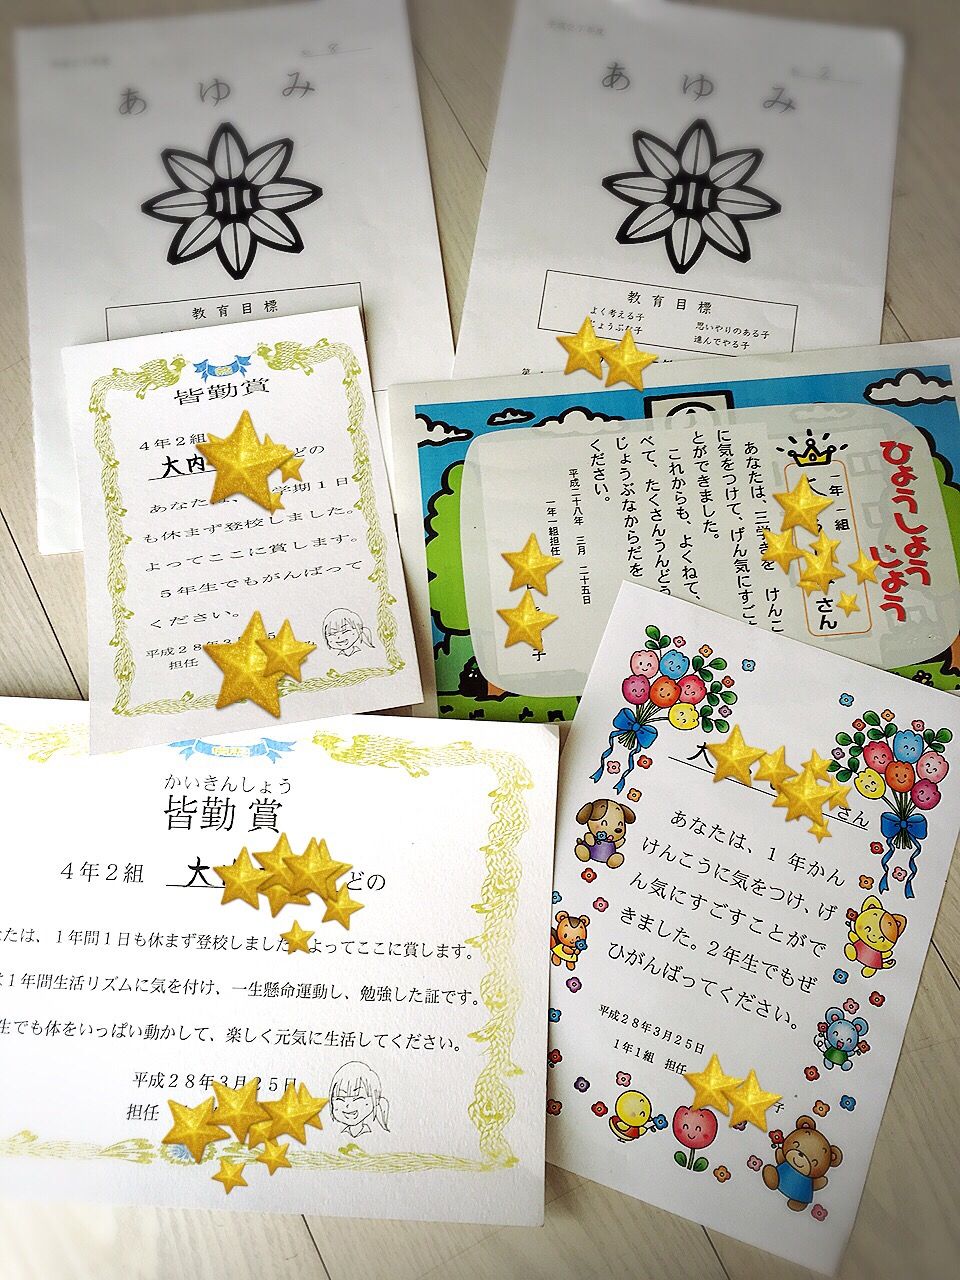 あゆみ
教育目標
あゆみ
2
教育目標
よく考える子
思いやりのある子
じょうぶな子
進んでやる子
皆勤賞
4年2組
大内
どの
あなたは、
学期1日
も休まず登校しました。
よってここに賞します。
5年生でもがんばって
ください。
平成28年3月25
担任
ひょうしょうじょう
一年一組
さん
あなたは、三学きを けんこ
に気をつけて、げん気にすご
とができました。
これからも、よくねて、
べて、たくさんうんどう
じょうぶなからだを
ください。
平成二十八年 三月 二十五日
一年一組担任
子
かいきんしょう
皆勤賞
4年2組
大
どの
たは、1年間1日も休まず登校しました
よってここに賞します。
1年間生活リズムに気を付け、一生懸命運動し、勉強した証です。
生でも体をいっぱい動かして、楽しく元気に生活してください。
平成28年3月25日
担任
大
さん
あなたは、1年かん
けんこうに気をつけ、げ
ん気にすごすことがで
きました。2年生でもぜ
ひがんばってください。
平成28年3月25日
1年1組 担任
子